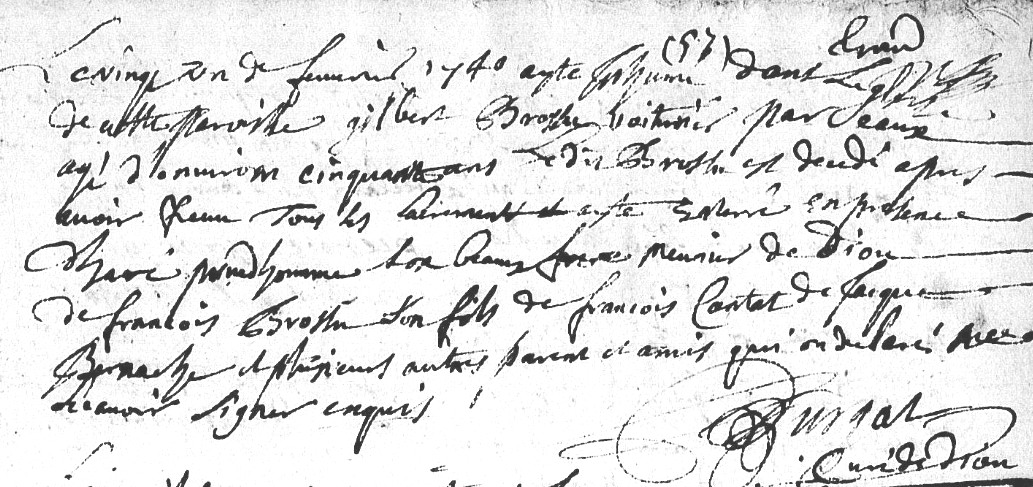 Le vingt un de fevrier 1740 a esté Inhumé (57) dans L'eglise
de cette paroisse gilbert Brossu voiturier par eaux
agé d'environ cinquante ans Ledit Brossu est decedé apres
avoir Receu Tous les sacrement et a esté Enterré En presence
prudhomme son beau frere meunier de Diou
de francois Brossu son fils de francois Cartat de Jacque
Bernache et plusieurs autres parent et amis qui on declaré ne
scavoir signer enquis
Curé de Diou